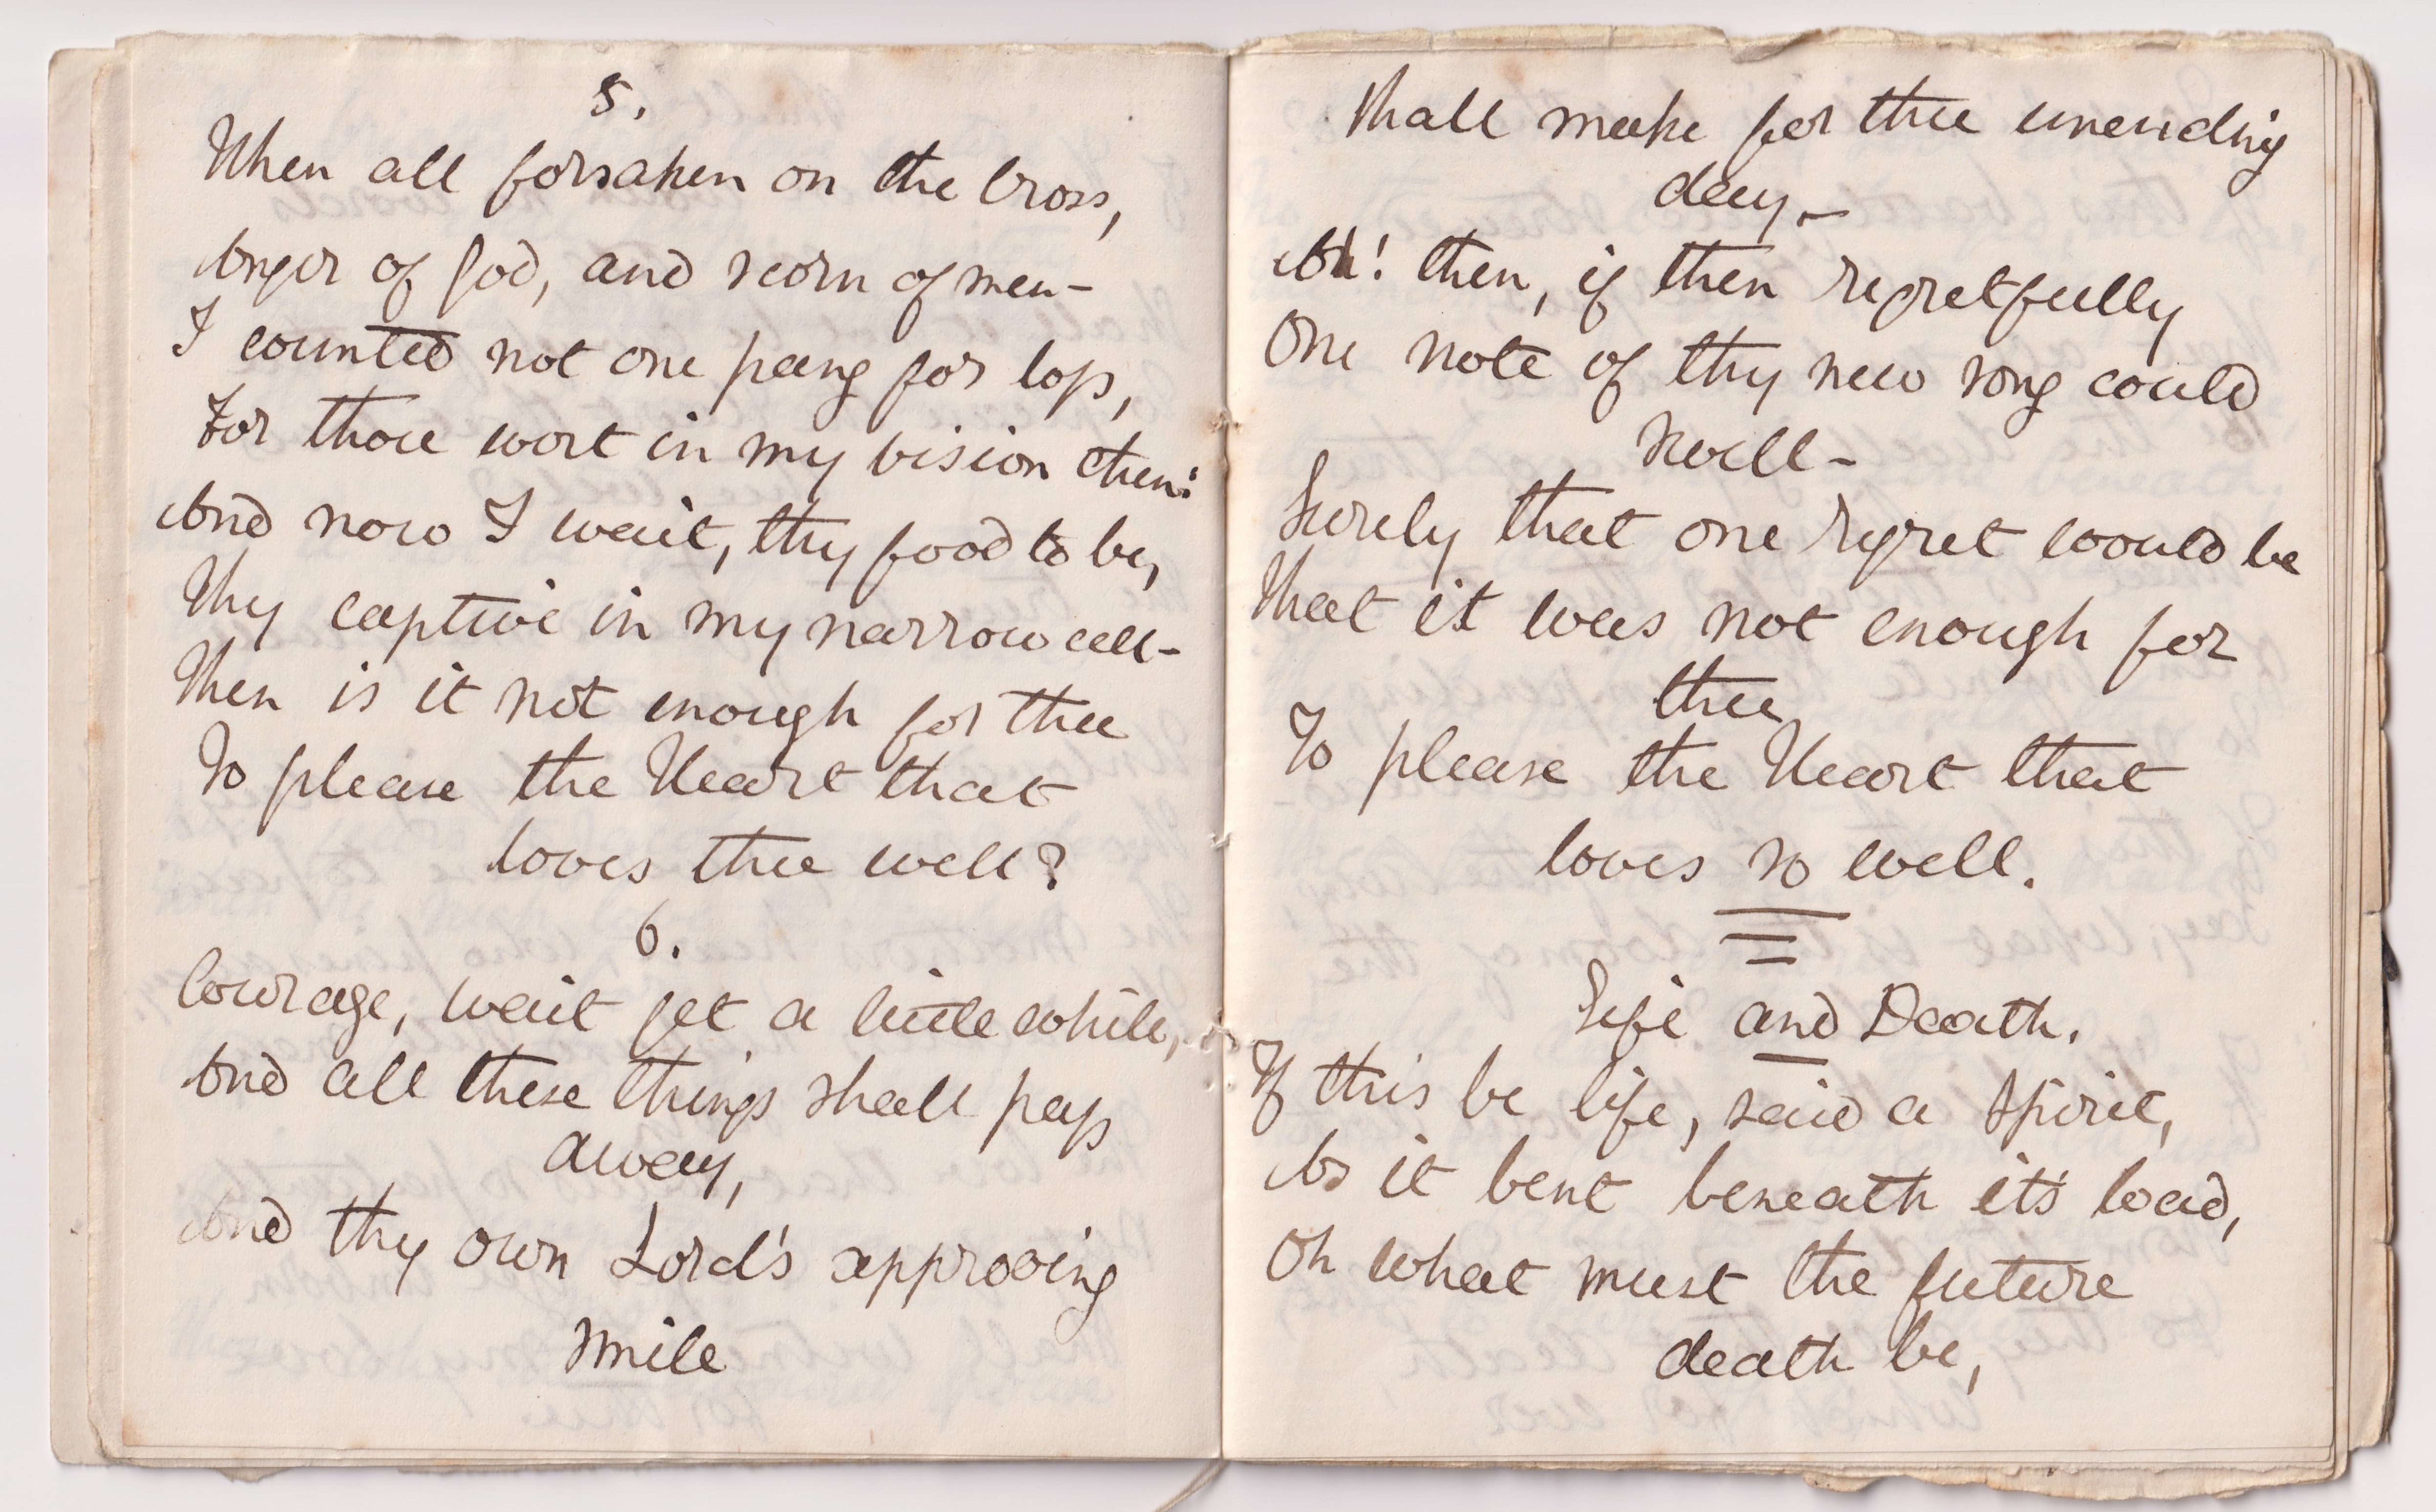 5.
When all forsaken on the Cross,
Anger of God, and scorn of men-
I counted not one pang for loss,
For thou wert in my vision then:
And now I wait, thy food to be,
Thy captive in my narrow cell-
Then is it not enough for thee
To please the Heart that
loves thee well?
6.
Courage, wait yet a little while,
And all these things shall pass
away,
And thy own Lord's approving
smile
Shall make for thee unending
day,-
Ah! then, if then regretfully
One note of thy new song could
swell-
Surely that one regret would be
That it was not enough for
thee
To please the Heart that
loves so well.
Life and Death.
If this be life, said a Spirit,
As it bent beneath it's load,
Oh what must the future
death be,